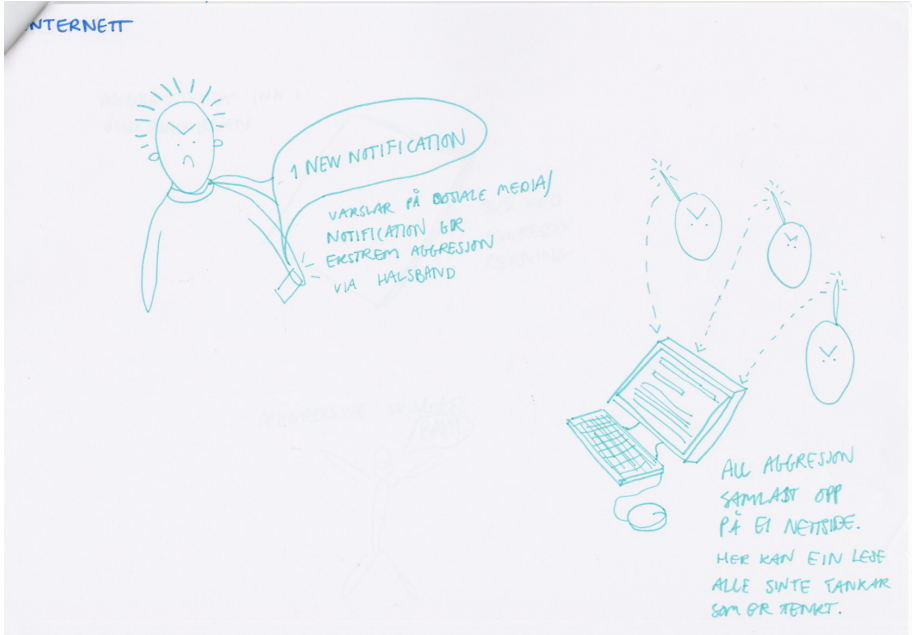 INTERNETT
1 NEW NOTIFICATION
VARSLAR PÅ SOSIALE MEDIA/
NOTIFICATION GIR
EKSTREM AGGRESJON
VIA HALSBÅND
ALL AGGRESJON
SAMLAST OPP
PÅ EI NETTSIDE.
HER KAN EIN LESE
ALLE SINTE TANKAR
SOM ER TENKT.